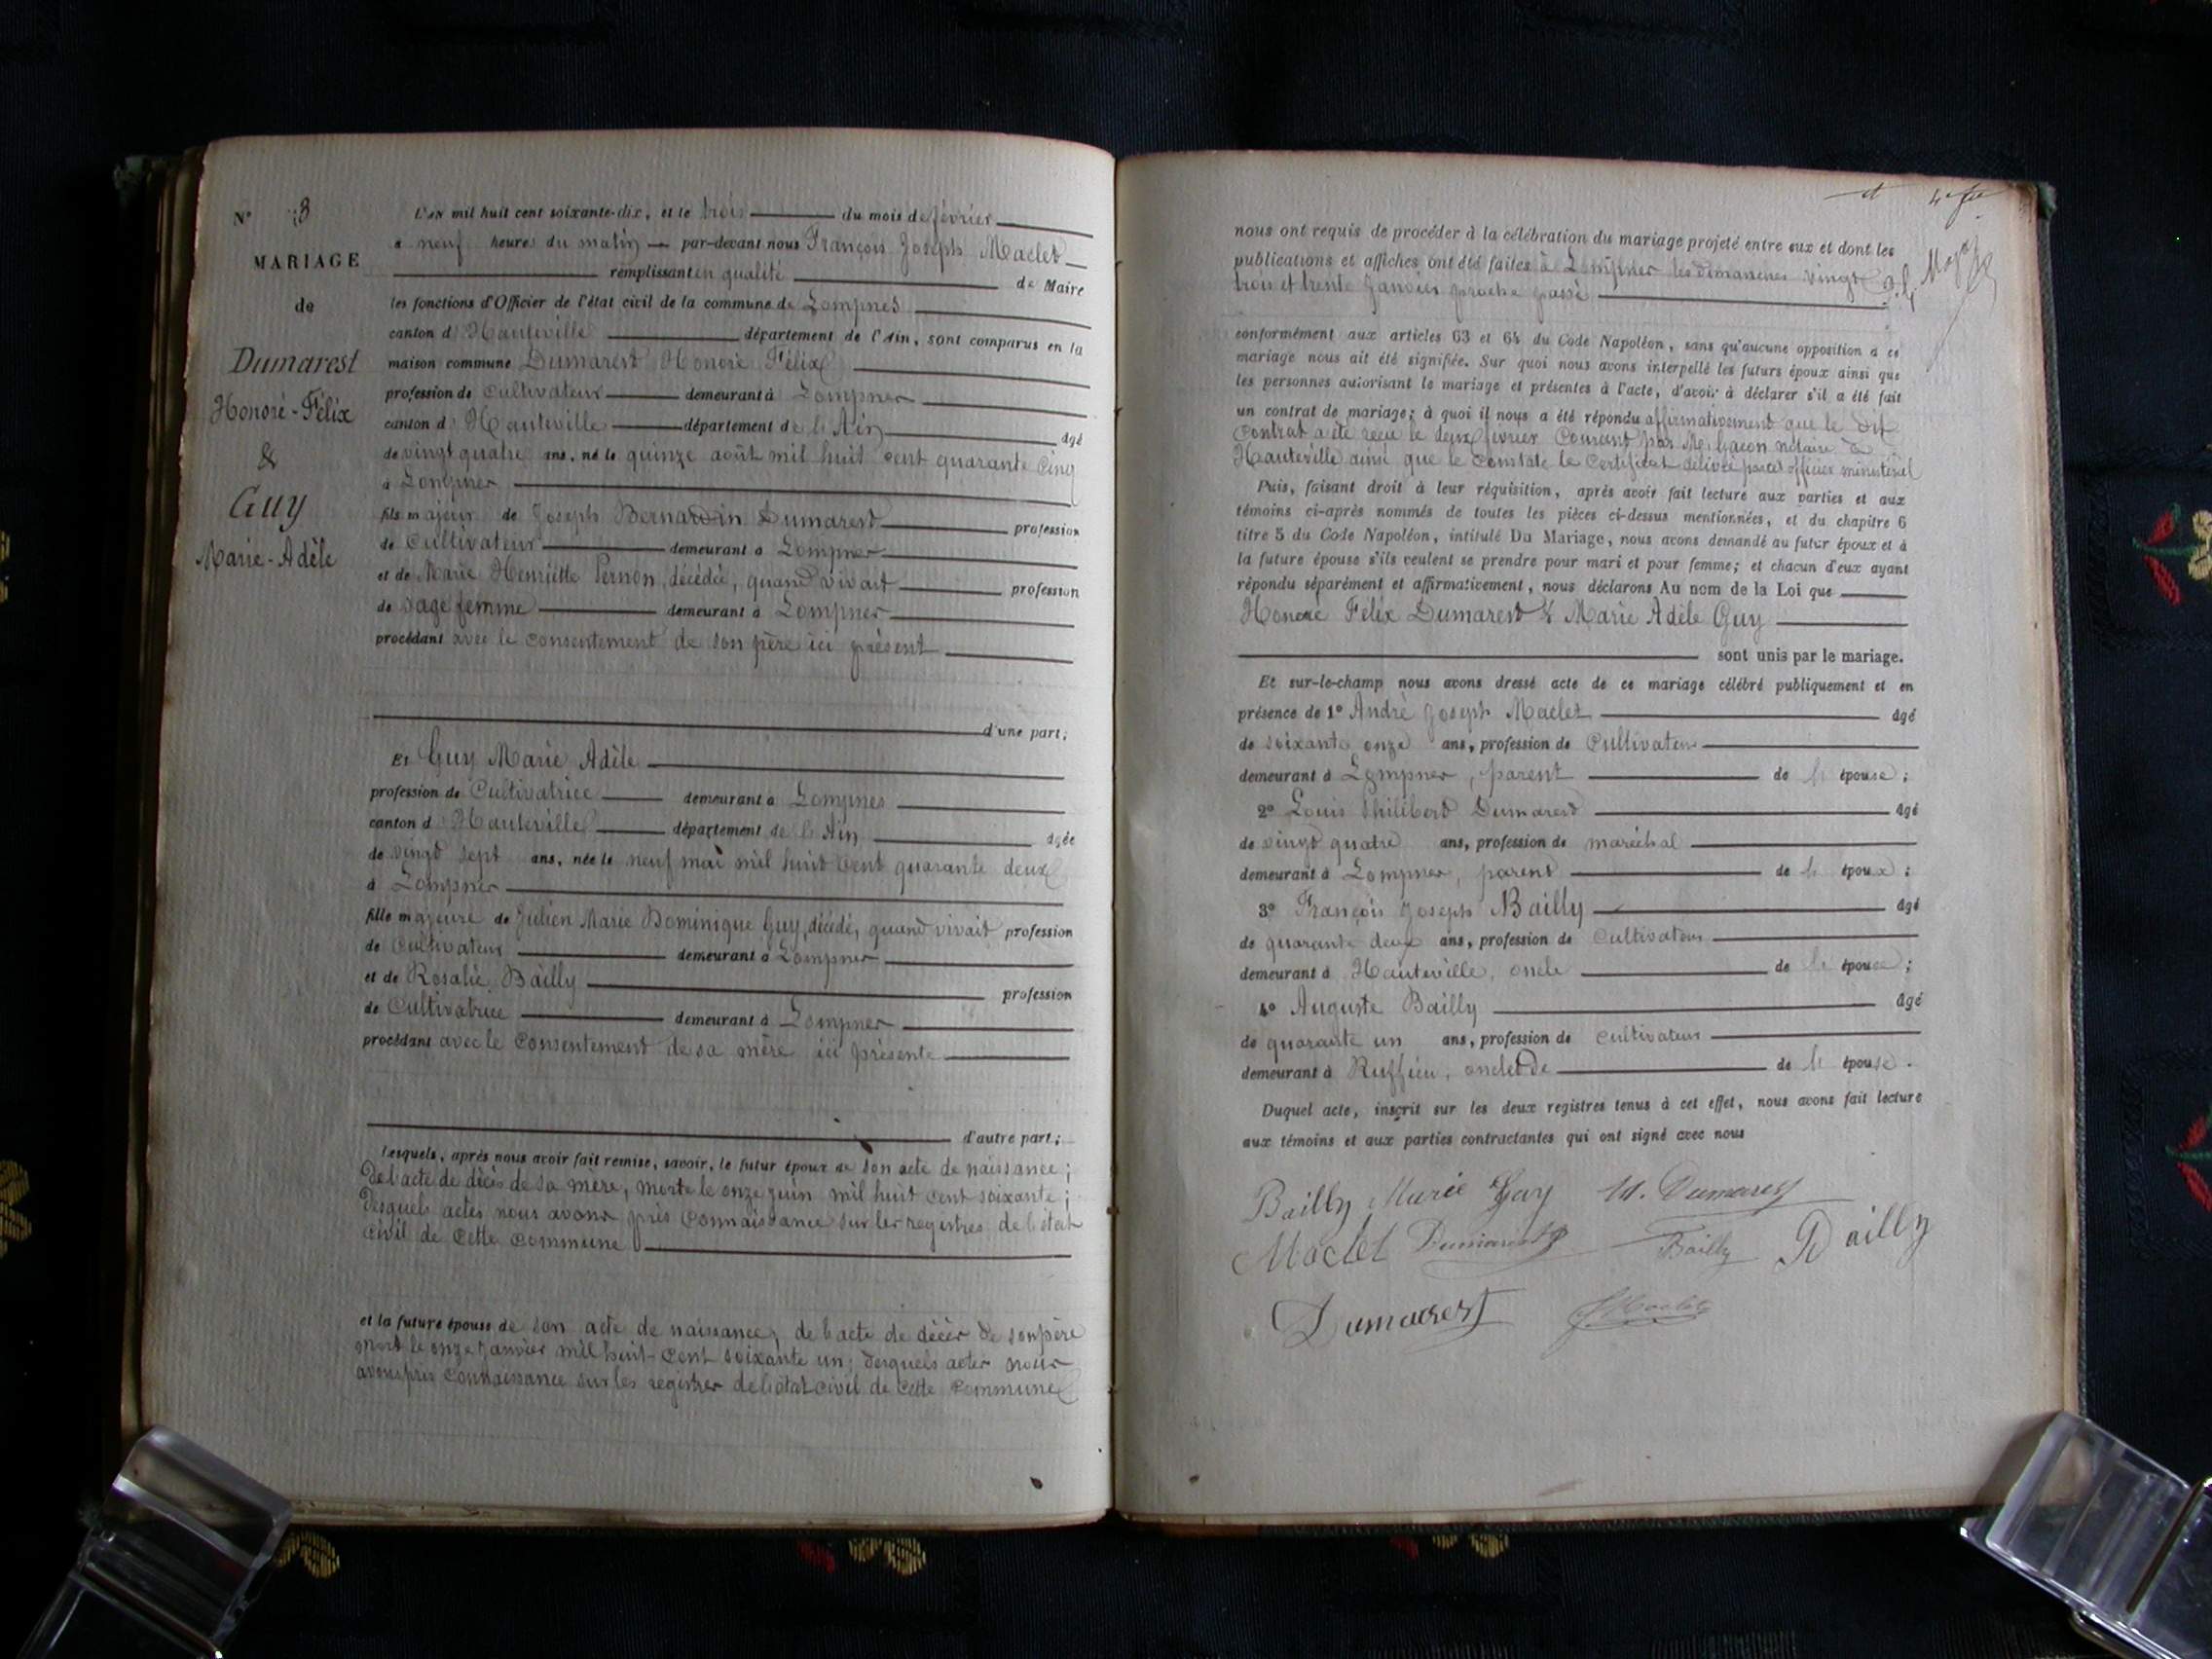 N° 3
MARIAGE
de
Dumarest
Honoré-Félix
&
Guy
Marie-Adèle
L'AN mil huit cent soixante-dix, et le trois du mois de février
à neuf heures du matin par-devant nous François Joseph Maclet
remplissant en qualité de Maire
les fonctions d'Officier de l'état civil de la commune de Lompnes
canton d' Hauteville département de l'Ain, sont comparus en la
maison commune Dumarest Honoré Félix
profession de Cultivateur demeurant à Lompnes
canton d' Hauteville département de l'Ain âgé
de vingt quatre ans, né le quinze août mil huit cent quarante cinq
à Lompnes
fils majeur de Joseph Bernardin Dumarest profession
de Cultivateur demeurant à Lompnes
et de Marie Henriette Pernon, décédée, quand vivait profession
de sage femme demeurant à Lompnes
procédant avec le consentement de son père ici présent
d'une part;
Et Guy Marie Adèle
profession de Cultivatrice demeurant à Lompnes
canton d' Hauteville département de l'Ain âgée
de vingt sept ans, née le neuf mai mil huit cent quarante deux
à Lompnes
fille majeure de Julien Marie Dominique Guy, décédé, quand vivait profession
de Cultivateur demeurant à Lompnes
et de Rosalie Bailly profession
de Cultivatrice demeurant à Lompnes
procédant avec le consentement de sa mère ici présente
d'autre part;
Lesquels, après nous avoir fait remise, savoir, le futur époux de son acte de naissance;
de l'acte de décès de sa mère, morte le onze juin mil huit cent soixante;
desquels actes nous avons pris connaissance sur les registres de l'état
civil de cette commune
et la future épouse de son acte de naissance, de l'acte de décès de son père
mort le onze janvier mil huit cent soixante un; desquels actes nous
avons pris connaissance sur les registres de l'état civil de cette commune
nous ont requis de procéder à la célébration du mariage projeté entre eux et dont les
publications et affiches ont été faites à Lompnes les dimanches vingt
trois et trente janvier proche passé
conformément aux articles 63 et 64 du Code Napoléon, sans qu'aucune opposition à ce
mariage nous ait été signifiée. Sur quoi nous avons interpellé les futurs époux ainsi que
les personnes autorisant le mariage et présentes à l'acte, d'avoir à déclarer s'il a été fait
un contrat de mariage; à quoi il nous a été répondu affirmativement que le dit
contrat a été reçu le deux février courant par Me notaire à
Hauteville ainsi que le constate le certificat délivré par cet officier ministériel
Puis, faisant droit à leur réquisition, après avoir fait lecture aux parties et aux
témoins ci-après nommés de toutes les pièces ci-dessus mentionnées, et du chapitre 6
titre 5 du Code Napoléon, intitulé Du Mariage, nous avons demandé au futur époux et à
la future épouse s'ils veulent se prendre pour mari et pour femme; et chacun d'eux ayant
répondu séparément et affirmativement, nous déclarons Au nom de la Loi que
Honoré Félix Dumarest & Marie Adèle Guy
sont unis par le mariage.
Et sur-le-champ nous avons dressé acte de ce mariage célébré publiquement et en
présence de 1° André Joseph Maclet âgé
de soixante onze ans, profession de Cultivateur
demeurant à Lompnes, parent de l' épouse;
2° Louis Philibert Dumarest âgé
de vingt quatre ans, profession de maréchal
demeurant à Lompnes, parent de l' époux;
3° François Joseph Bailly âgé
de quarante deux ans, profession de Cultivateur
demeurant à Hauteville, oncle de l' épouse;
4° Auguste Bailly âgé
de quarante un ans, profession de cultivateur
demeurant à Ruffieu, oncle de de l' épouse.
Duquel acte, inscrit sur les deux registres tenus à cet effet, nous avons fait lecture
aux témoins et aux parties contractantes qui ont signé avec nous
Bailly Marie Guy H. Dumarest
Maclet Dumarest Bailly Bailly
Dumarest Maclet